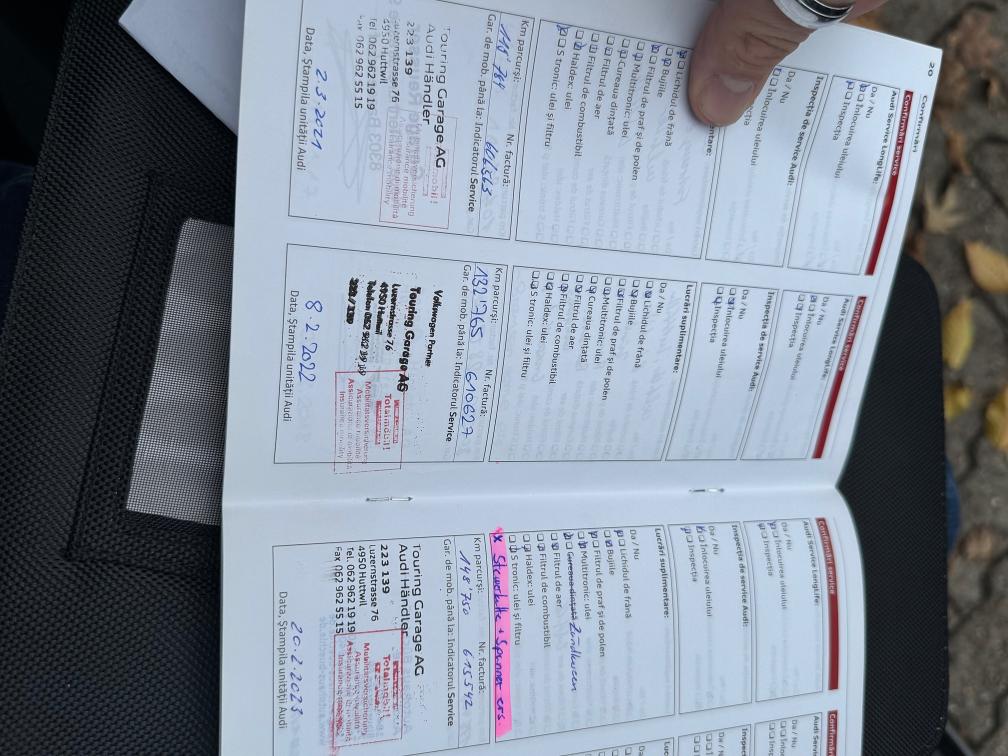 20
Confirmări
Confirmări service
Audi Service LongLife:
Da / Nu
Înlocuirea uleiului
Inspecția
Inspecția de service Audi:
Da / Nu
Înlocuirea uleiului
Lichidul de frână
Bujiile
Filtrul de praf și de polen
Multitronic: ulei
Cureaua dințată
Filtrul de aer
Filtrul de combustibil
Haldex: ulei
S tronic: ulei și filtru
Km parcurși:
Nr. factură:
Gar. de mob. până la: Indicatorul Service
Touring Garage AG
Audi Händler
223 139
Luzernstrasse 76
4950 Huttwil
Tel 062 962 19 19
Fax 062 962 55 15
2.3.2021
Data, Ștampila unității Audi
Confirmări service
Audi Service LongLife:
Da / Nu
Înlocuirea uleiului
Inspecția
Inspecția de service Audi:
Da / Nu
Înlocuirea uleiului
Inspecția
Lucrări suplimentare:
Da / Nu
Lichidul de frână
Bujiile
Filtrul de praf și de polen
Multitronic: ulei
Cureaua dințată
Filtrul de aer
Filtrul de combustibil
Haldex: ulei
S tronic: ulei și filtru
Km parcurși:
Nr. factură:
132'765 610627
Gar. de mob. până la: Indicatorul Service
Volkswagen Partner
Touring Garage AG
Luzernstrasse 76
4950 Huttwil
Totalmobil!
Mobilitätsversicherung
Assurance mobilité
Assicurazione di mobilità
Insurance mobility
8.2.2022
Data, Ștampila unității Audi
Confirmări service
Audi Service LongLife:
Da / Nu
Înlocuirea uleiului
Inspecția
Inspecția de service Audi:
Da / Nu
Înlocuirea uleiului
Inspecția
Lucrări suplimentare:
Da / Nu
Lichidul de frână
Bujiile
Filtrul de praf și de polen
Multitronic: ulei
Cureaua dințată Zündkerzen
Filtrul de aer
Filtrul de combustibil
Haldex: ulei
S tronic: ulei și filtru
* Steuerkette + Spanner ers.
Km parcurși:
Nr. factură:
148'750 615542
Gar. de mob. până la: Indicatorul Service
Touring Garage AG
Audi Händler
223 139
Luzernstrasse 76
4950 Huttwil
Tel 062 962 19 19
Fax 062 962 55 15
Totalmobil!
Mobilitätsversicherung
Assurance mobilité
Assicurazione di mobilità
Insurance mobility
20.2.2023
Data, Ștampila unității Audi